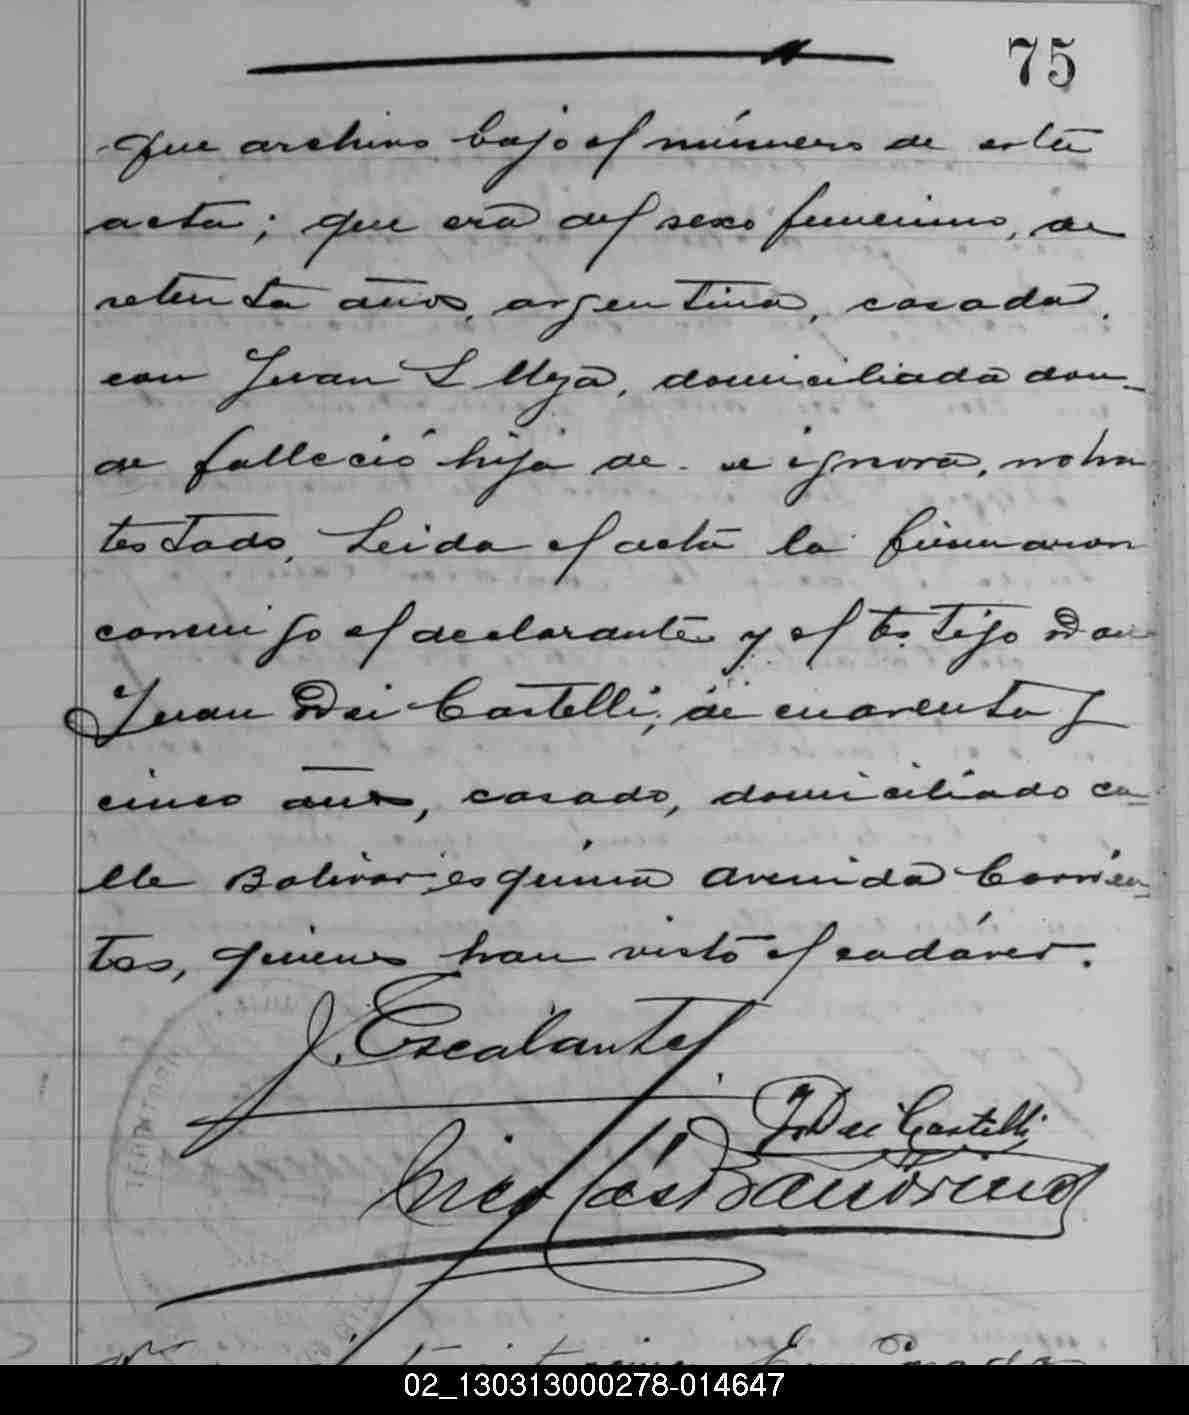 75
que archivo bajo el número de esta
acta; que era del sexo femenino, de
setenta años, argentina, casada
con Juan L Meza, domiciliada don-
de falleció hija de se ignora, no ha
testado, Leida el acta la firmaron
conmigo el declarante y el testigo Don
Juan Dei Castelli, de cuarenta y
cinco años, casado, domiciliado ca-
lle Bolivar esquina avenida Corrien-
tes, quienes han visto el cadáver.
J. Escalante
J Dei Castelli
Nicolás
TERRITORIO
02_130313000278-014647